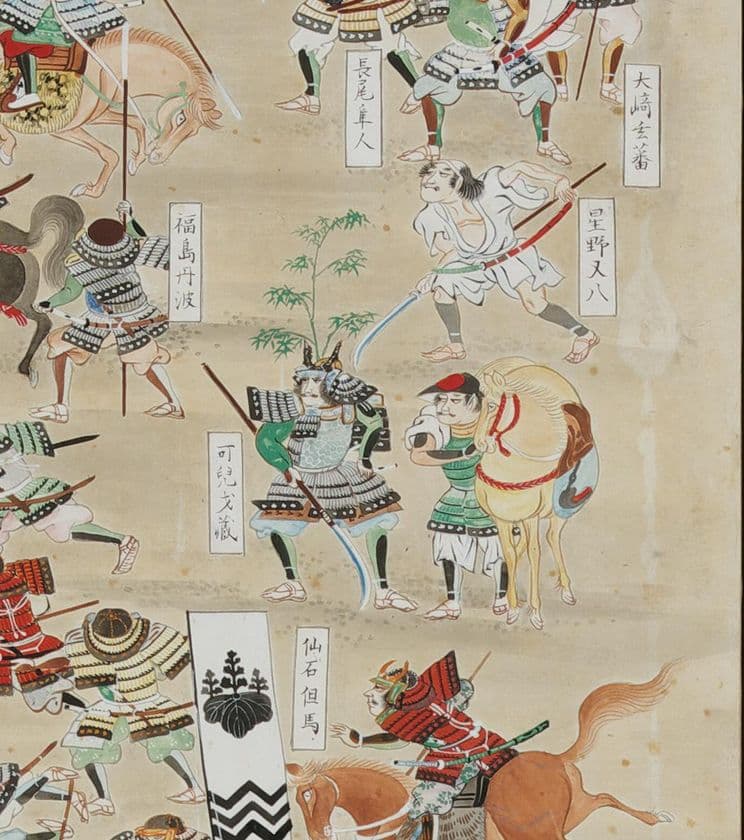 大﨑玄蕃
長尾隼人
星野又八
福島丹波
可兒才藏
仙石但馬